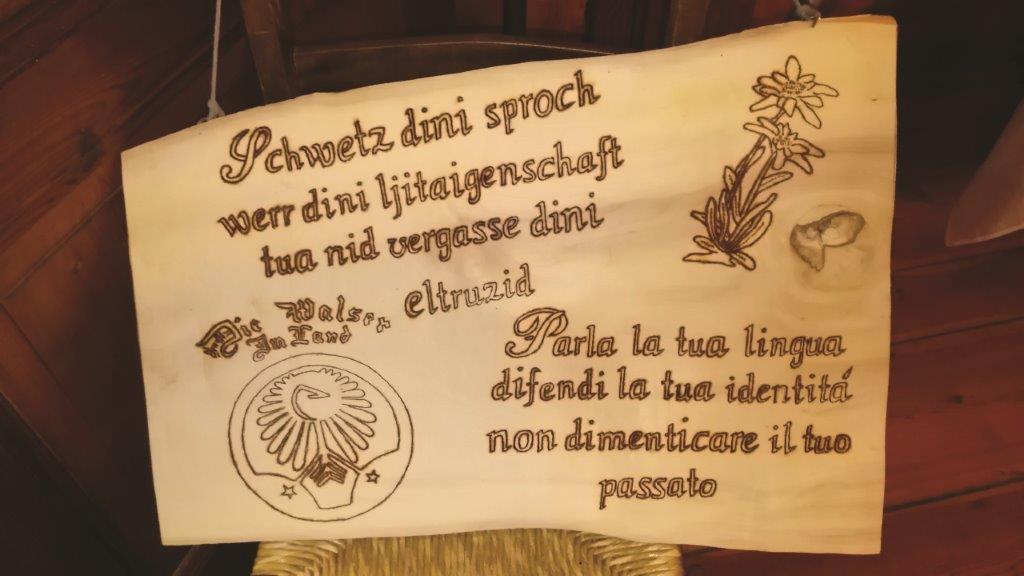 Schwetz dini sproch
werr dini ljitaigenschaft
tua nid vergasse dini
eltruzid
Die Walser
Im Land
Parla la tua lingua
difendi la tua identitá
non dimenticare il tuo
passato